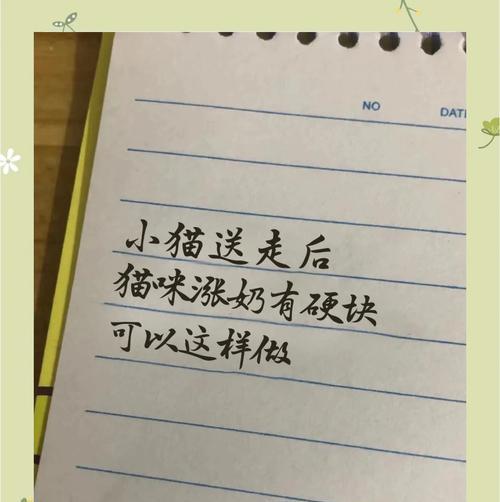 NO
DATE
小猫送走后
猫咪涨奶有硬块
可以这样做